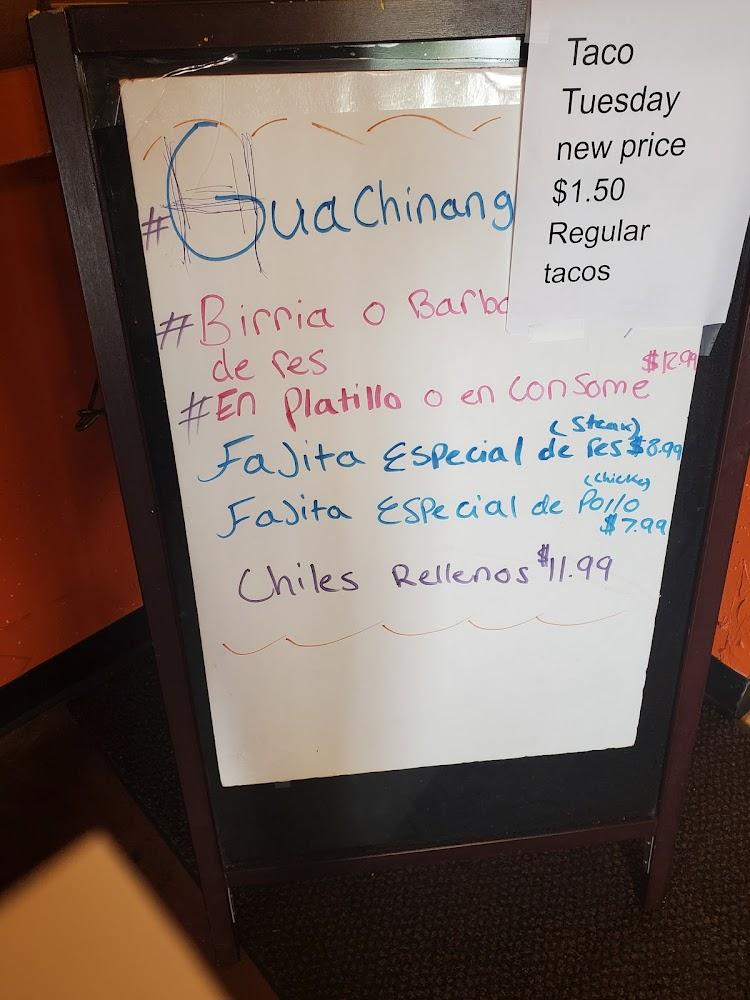 Taco
Tuesday
new price
$1.50
Regular
tacos
#Guachinang
#Birria o Barba
de res $12.99
#En Platillo o en Consome
(Steak)
Fajita Especial de res $8.99
Fajita Especial de Pollo
$7.99
Chiles Rellenos $11.99